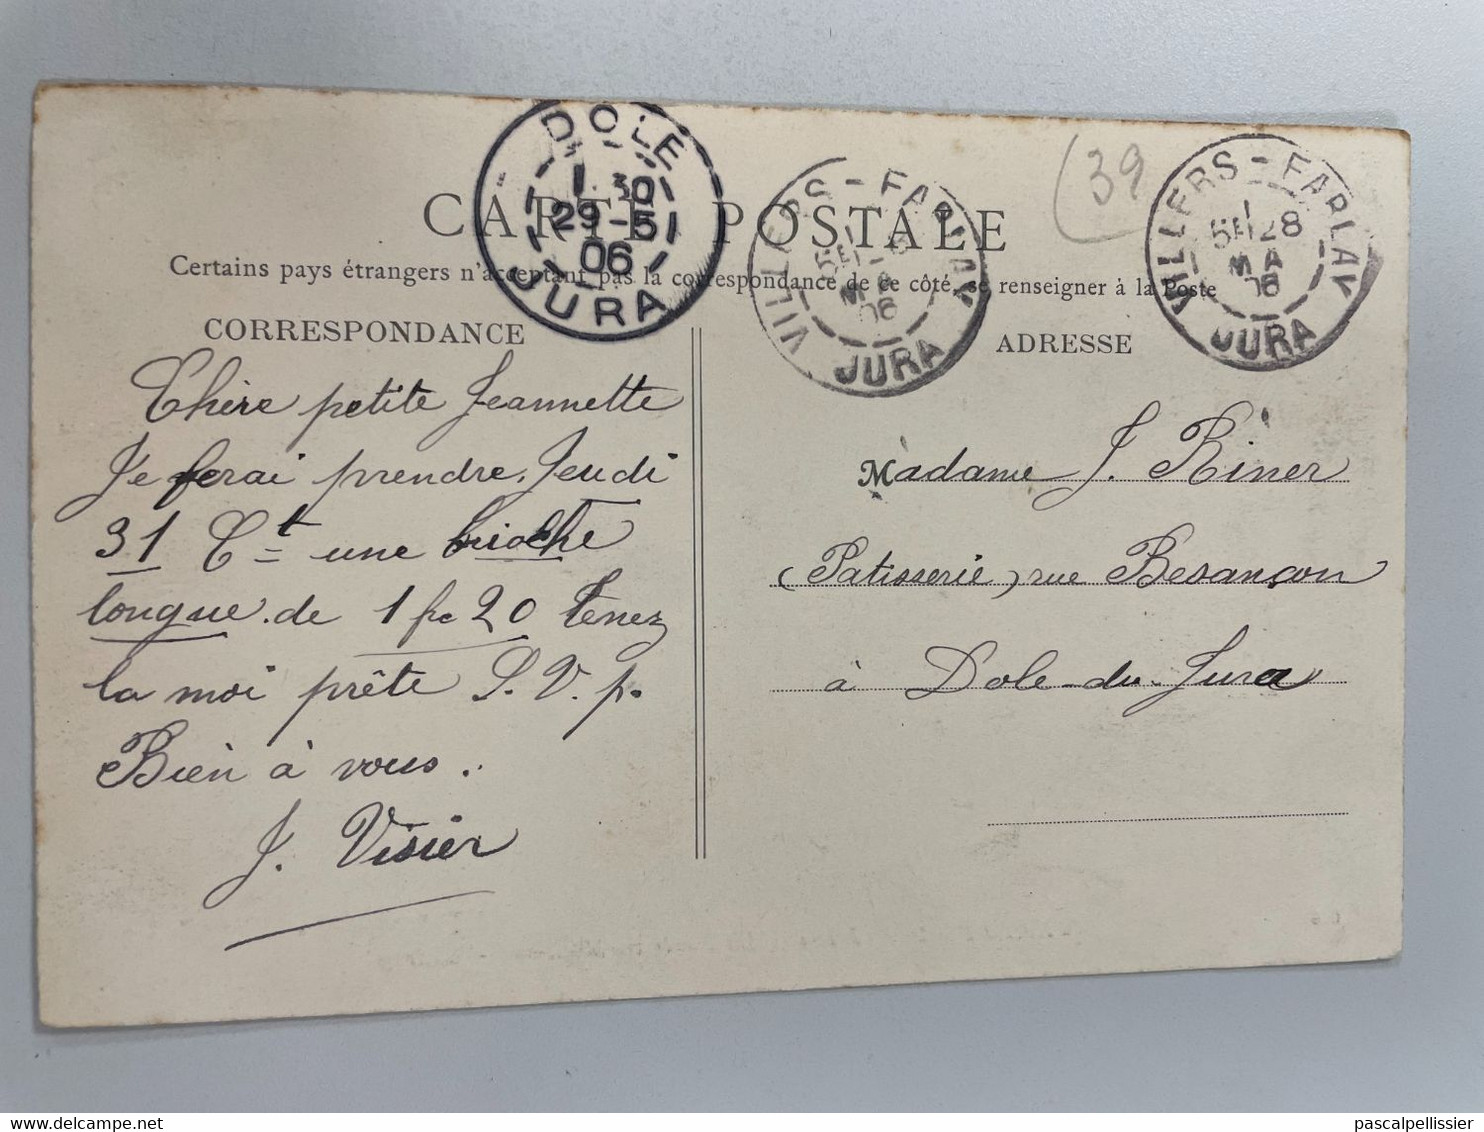 DOLE
1 30
29-5
06
JURA
VILLERS-FARLAY
5E 28
MA
06
JURA
VILLERS-FARLAY
5E
MA
06
JURA
(39
CARTE POSTALE
Certains pays étrangers n'acceptant pas la correspondance de ce côté, se renseigner à la Poste
CORRESPONDANCE
Chère petite Jeannette
Je ferai prendre Jeudi
31 Ct une brioche
longue de 1 fc 20 Tenez
la moi prête S. V. p.
Bien à vous.
J. Visier
ADRESSE
Madame J. Riner
(Patisserie) rue Besançon
à Dole-du-Jura
delcampe.net
pascalpellissier